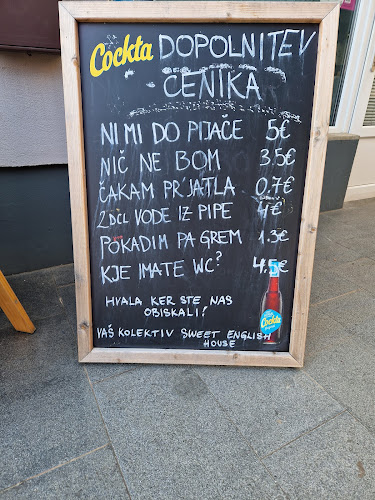 Cockta DOPOLNITEV
CENIKA
NI MI DO PIJAČE 5€
NIČ NE BOM 3.5€
ČAKAM PR'JATLA 0.7€
2DCL VODE IZ PIPE 4€
POKADIM PA GREM 1.3€
KJE IMATE WC? 4.5€
HVALA KER STE NAS
OBISKALI!
VAŠ KOLEKTIV SWEET ENGLISH
HOUSE
Cockta